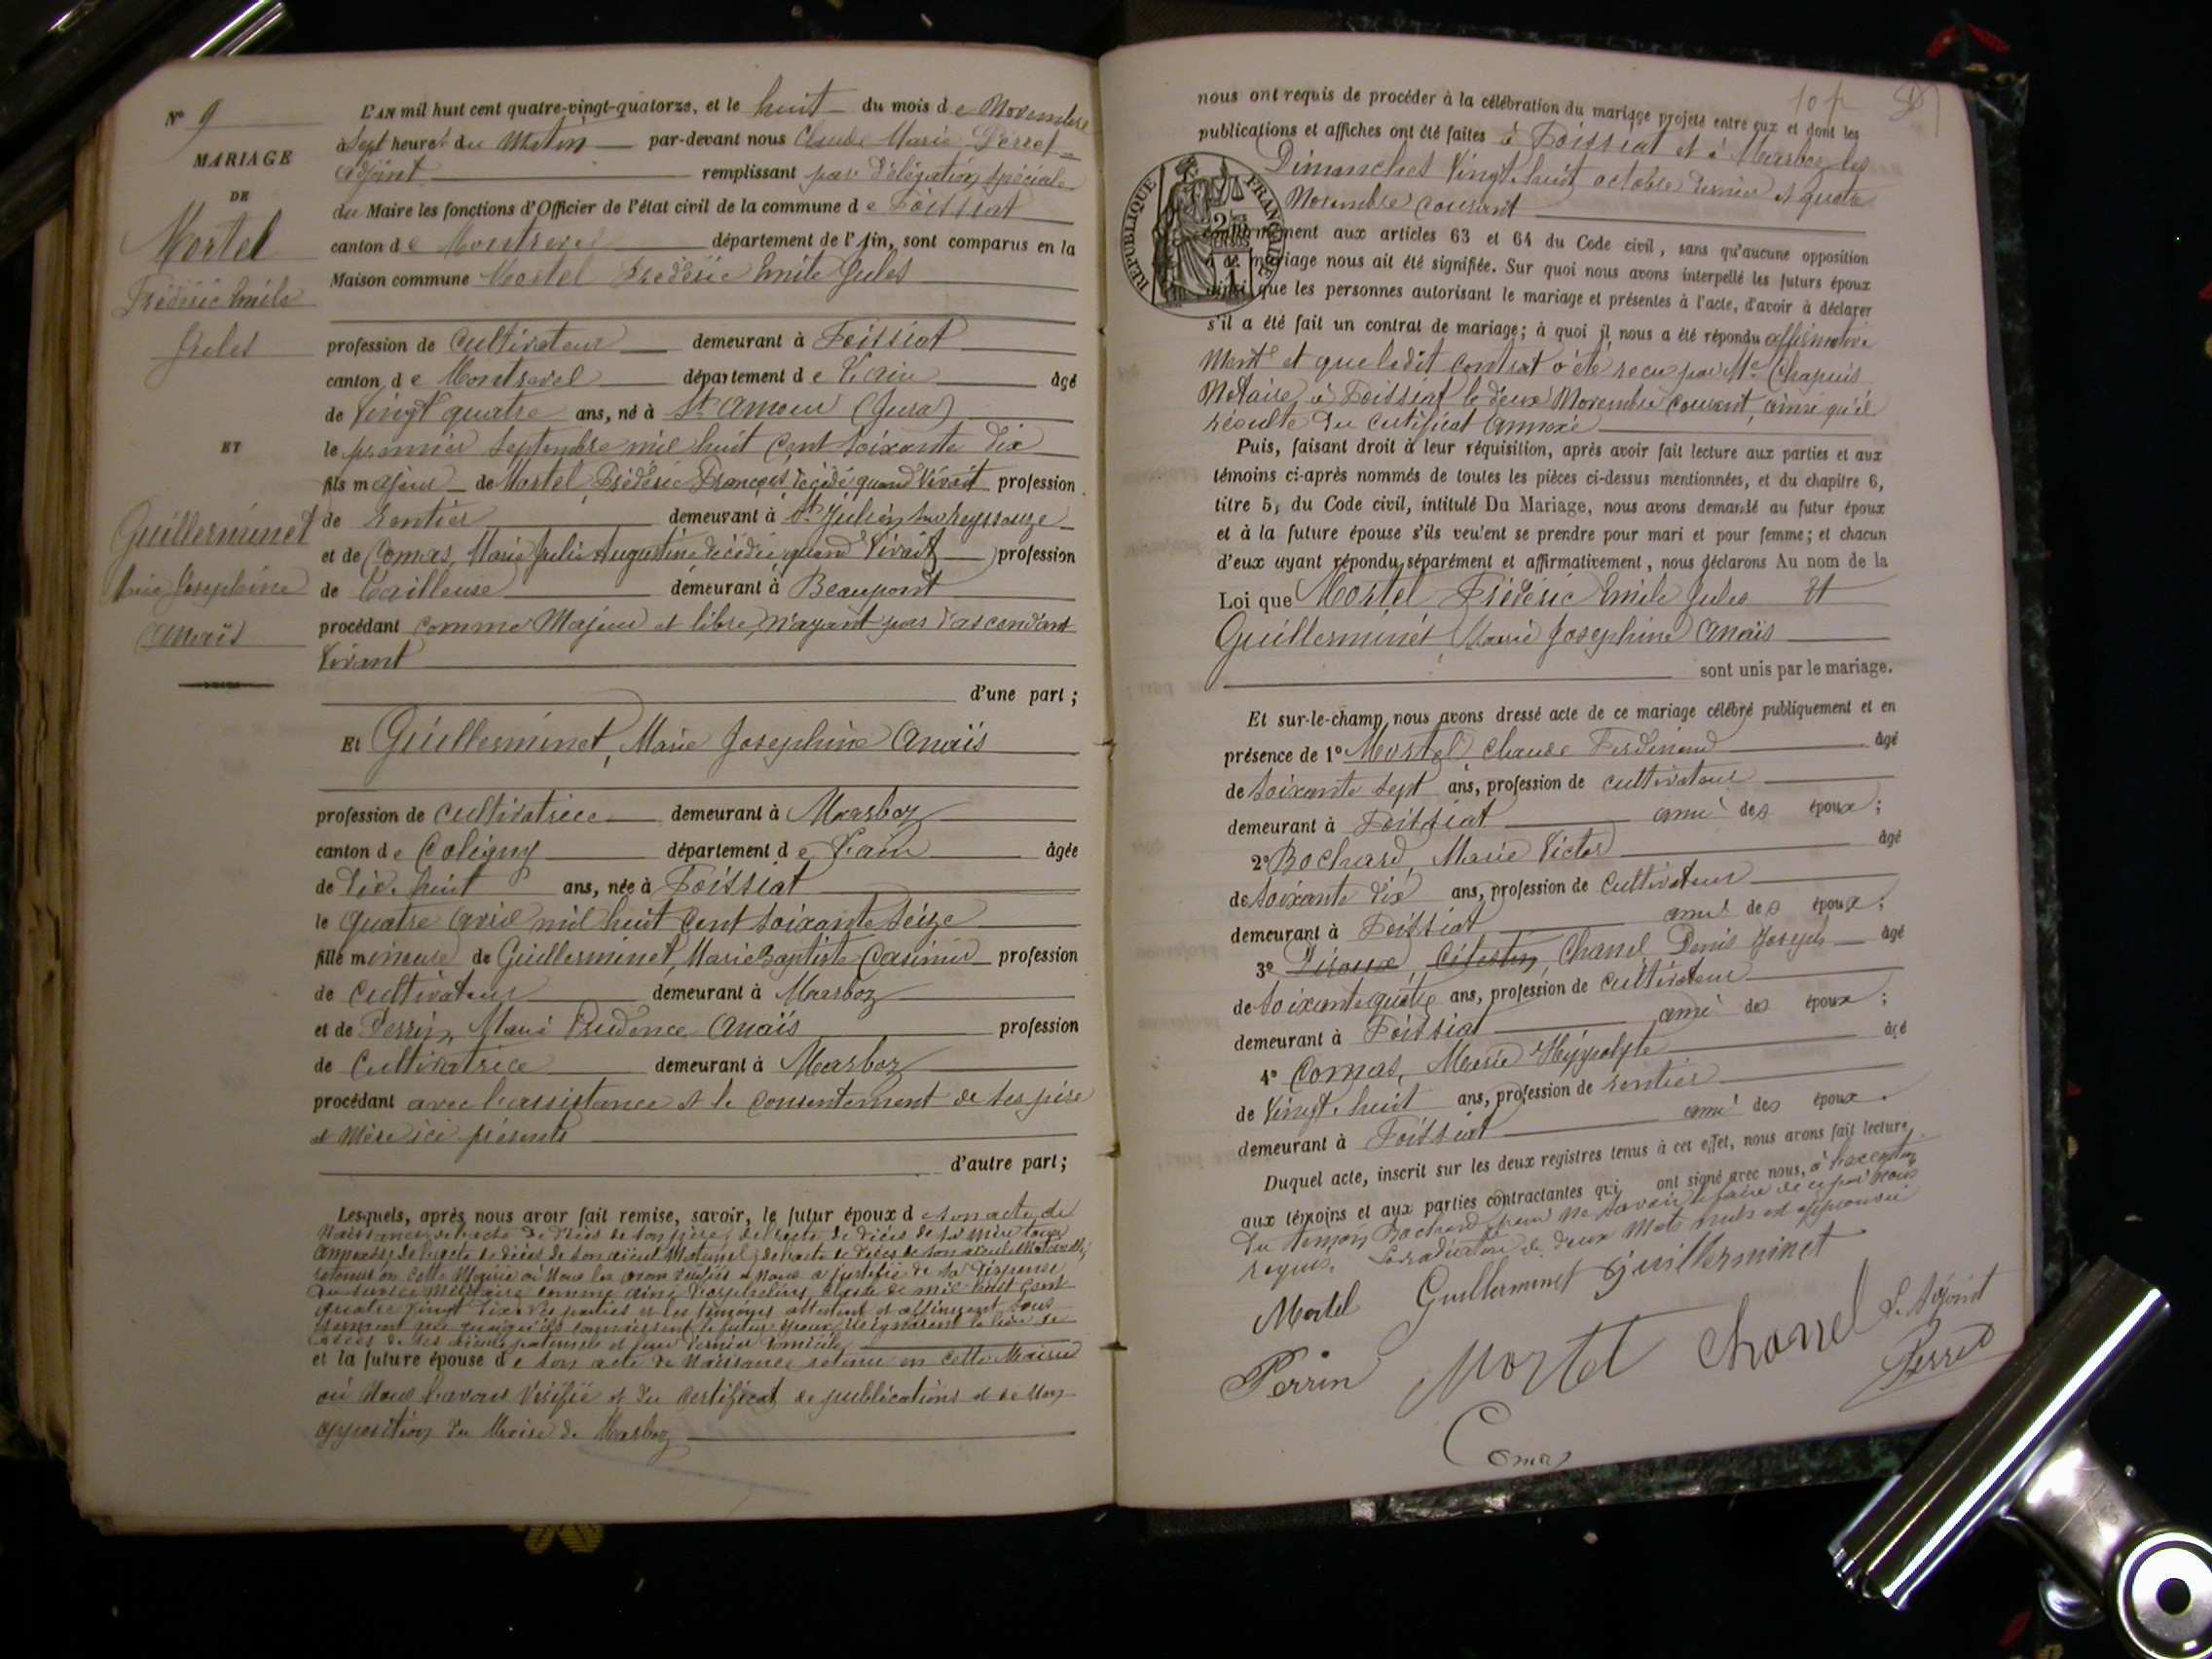 N° 9
MARIAGE
DE
Mortel
Frédéric Emile
Jules
ET
Guillerminet
Marie Josephine
Anaïs
L'AN mil huit cent quatre-vingt-quatorze, et le huit du mois de Novembre
à Sept heures du Matin par-devant nous Claude Marie Perret
adjoint remplissant par délégation spéciale
du Maire les fonctions d'Officier de l'état civil de la commune de Foissiat
canton de Montrevel département de l'Ain, sont comparus en la
Maison commune Mortel Frédéric Emile Jules
profession de Cultivateur demeurant à Foissiat
canton de Montrevel département de l'Ain âgé
de Vingt quatre ans, né à St Amour (Jura)
le premier Septembre mil huit cent soixante dix
fils majeur de Mortel Frédéric François, décédé quand vivait profession
de rentier demeurant à St Julien sur Reyssouze
et de Comas, Marie Julie Augustine décédée, quand vivait profession
de Tailleuse demeurant à Beaupont
procédant comme Majeur et libre, n'ayant pas d'ascendant
vivant
d'une part ;
Et Guillerminet, Marie Josephine Anaïs
profession de cultivatrice demeurant à Marboz
canton de Coligny département de l'ain âgée
de dix huit ans, née à Foissiat
le quatre avril mil huit cent soixante seize
fille mineure de Guillerminet, Marie Baptiste Casimir profession
de cultivateur demeurant à Marboz
et de Perrin, Marie Prudence Anaïs profession
de Cultivatrice demeurant à Marboz
procédant avec l'assistance et le consentement de ses père
et Mère ici présents
d'autre part ;
Lesquels, après nous avoir fait remise, savoir, le futur époux de son acte de
Naissance, de l'acte de décès de son père, de l'acte de décès de sa mère tous
annexés, de l'acte de décès de son aieul Maternel, de l'acte de décès de son aieule Maternelle,
retenus en cette Mairie où Nous les avons vérifiés et Nous a justifié de sa dispense
du service Militaire comme ainé d'orphelins, classe de mil huit cent
quatre vingt dix. Les parties et les témoins attestent et affirment sous
serment que quoiqu'ils connaissent le futur époux ils ignorent le lieu de
décès de ses aïeuls paternels et leur dernier domicile
et la future épouse de son acte de Naissance retenu en cette Mairie
où Nous l'avons Vérifié et du certificat de publications et de Non
opposition du Maire de Marboz
10 f
nous ont requis de procéder à la célébration du mariage projeté entre eux et dont les
publications et affiches ont été faites à Foissiat et à Marboz les
Dimanches Vingt huit octobre dernier et quatre
Novembre courant
conformément aux articles 63 et 64 du Code civil, sans qu'aucune opposition
à ce mariage nous ait été signifiée. Sur quoi nous avons interpellé les futurs époux
ainsi que les personnes autorisant le mariage et présentes à l'acte, d'avoir à déclarer
s'il a été fait un contrat de mariage ; à quoi il nous a été répondu affirmative
Ment et que ledit contrat a été reçu par Me Chapuis
Notaire à Foissiat le deux Novembre courant, ainsi qu'il
résulte du certificat annexé
RÉPUBLIQUE FRANÇAISE
Puis, faisant droit à leur réquisition, après avoir fait lecture aux parties et aux
témoins ci-après nommés de toutes les pièces ci-dessus mentionnées, et du chapitre 6,
titre 5, du Code civil, intitulé Du Mariage, nous avons demandé au futur époux
et à la future épouse s'ils veulent se prendre pour mari et pour femme ; et chacun
d'eux ayant répondu séparément et affirmativement, nous déclarons Au nom de la
Loi que Mortel Frédéric Emile Jules Et
Guillerminet Marie Josephine Anaïs
sont unis par le mariage.
Et sur-le-champ nous avons dressé acte de ce mariage célébré publiquement et en
présence de 1° Mortel Claude Ferdinand âgé
de soixante sept ans, profession de cultivateur
demeurant à Foissiat ami des époux ;
2° Bochard, Marie Victor âgé
de soixante dix ans, profession de cultivateur
demeurant à Foissiat ami des époux ;
3° Piroux, Célestin Chanel, Denis Joseph âgé
de soixante quatre ans, profession de cultivateur
demeurant à Foissiat ami des époux ;
4° Comas, Marie Hyppolyte âgé
de Vingt huit ans, profession de rentier
demeurant à Foissiat ami des époux.
Duquel acte, inscrit sur les deux registres tenus à cet effet, nous avons fait lecture
aux témoins et aux parties contractantes qui ont signé avec nous, à l'exception
du témoin Bochard pour ne savoir le faire de ce par nous
requis. La radiation de deux Mots nuls est approuvée
Mortel Guillerminet Guillerminet
Perrin Mortel Chanel L'Adjoint
Perret
Comas